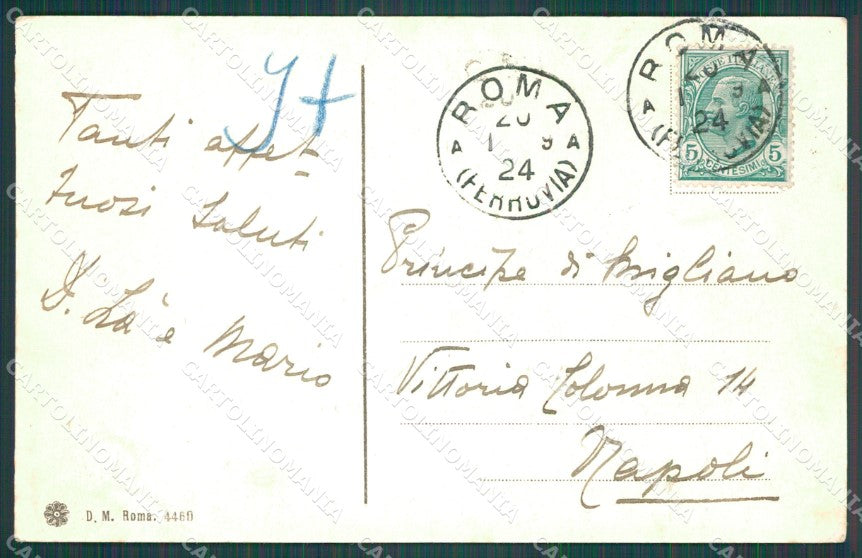 Tanti affet-
tuosi saluti
e Mario
ROMA
20
1 9
24
(FERROVIA)
A A
ROMA
1 9
24
(FERROVIA)
A A
5 CENTESIMI 5
Principe di Migliano
Vittoria Colonna 14
Napoli
D. M. Roma. 4460
CARTOLINOMANIA